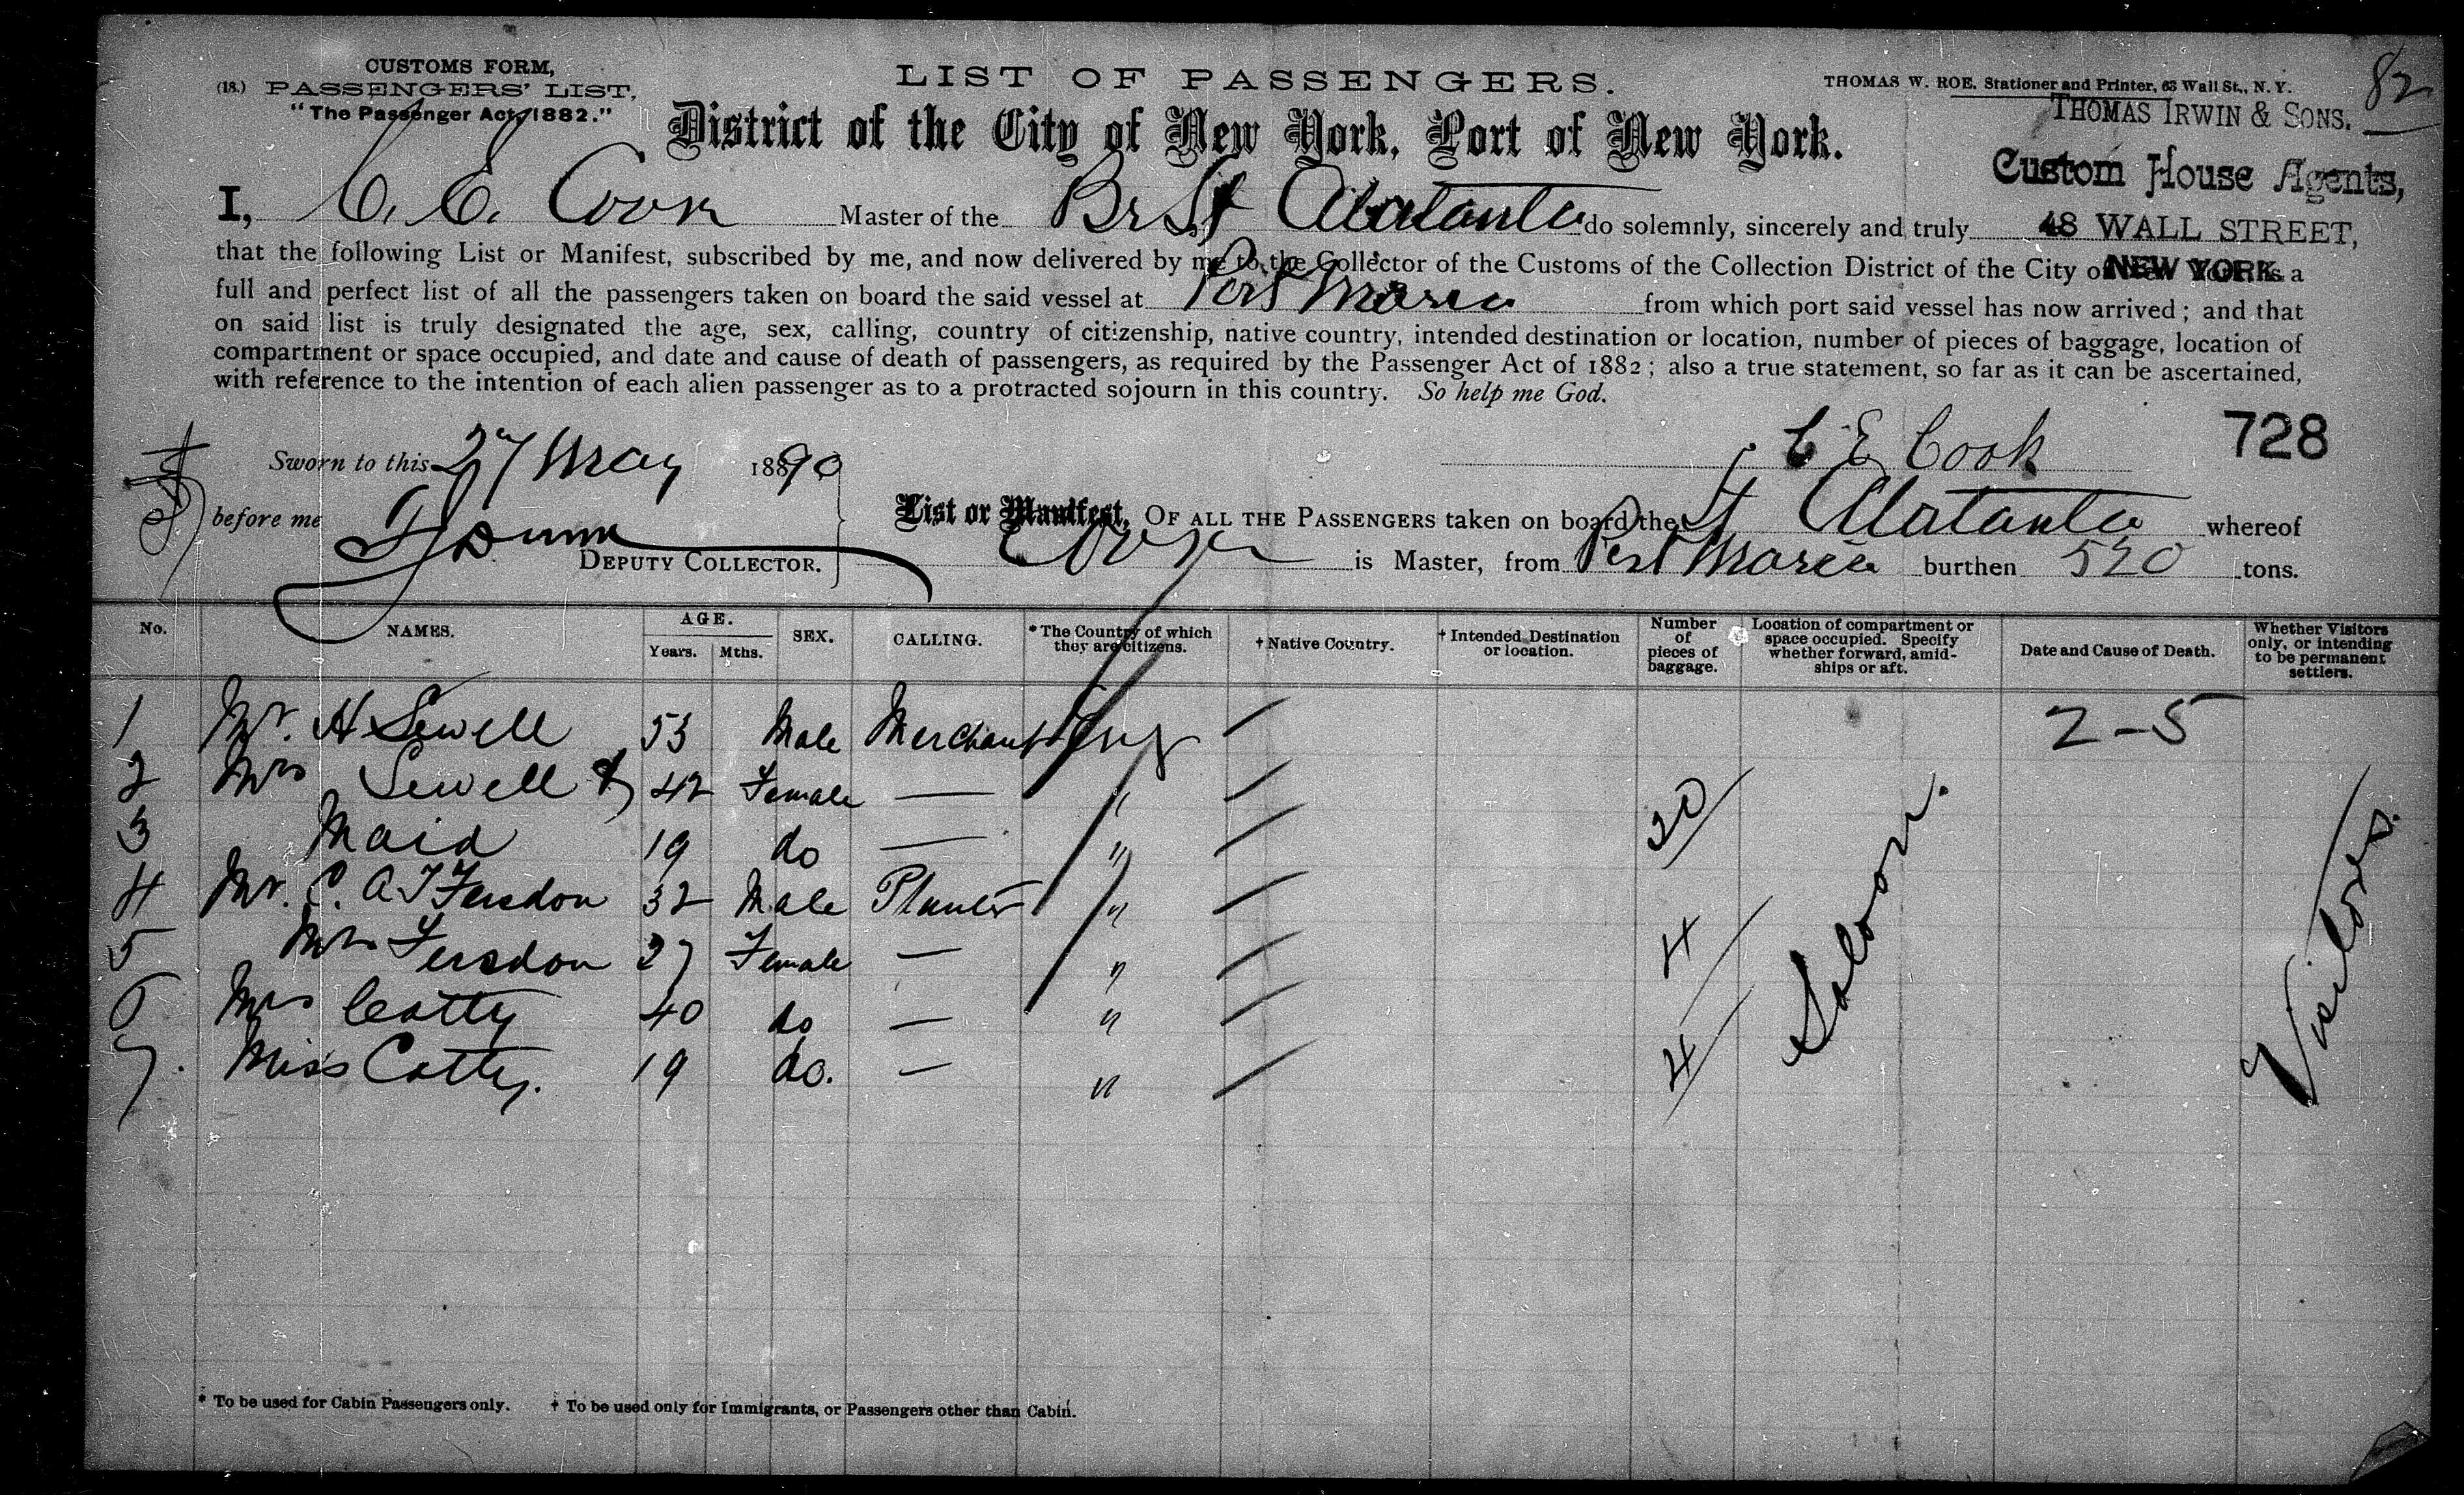 CUSTOMS FORM,
(18.) PASSENGERS' LIST,
"The Passenger Act, 1882."
LIST OF PASSENGERS.
THOMAS W. ROE, Stationer and Printer, 63 Wall St., N. Y.
82
THOMAS IRWIN & SONS.
Custom House Agents,
48 WALL STREET,
NEW YORK.
District of the City of New York, Port of New York.
I, C. E. Cook Master of the Br SS Alatanta do solemnly, sincerely and truly
that the following List or Manifest, subscribed by me, and now delivered by me to the Collector of the Customs of the Collection District of the City of New York is a
full and perfect list of all the passengers taken on board the said vessel at Port Maria from which port said vessel has now arrived; and that
on said list is truly designated the age, sex, calling, country of citizenship, native country, intended destination or location, number of pieces of baggage, location of
compartment or space occupied, and date and cause of death of passengers, as required by the Passenger Act of 1882; also a true statement, so far as it can be ascertained,
with reference to the intention of each alien passenger as to a protracted sojourn in this country. So help me God.
Sworn to this 27 May 1890
C E Cook
728
before me
DEPUTY COLLECTOR.
List or Manifest, OF ALL THE PASSENGERS taken on board the SS Alatanta whereof
Cook is Master, from Port Maria burthen 520 tons.
No. NAMES. AGE. Years. Mths. SEX. CALLING. * The Country of which they are citizens. † Native Country. † Intended Destination or location. Number of pieces of baggage. Location of compartment or space occupied. Specify whether forward, amidships or aft. Date and Cause of Death. Whether Visitors only, or intending to be permanent settlers.
1 Mr. H Sewell 53 Male Merchant Eng — 2-5
2 Mrs Sewell & 42 Female — " —
3 Maid 19 do — " — 20
4 Mr. C. A T Fersdon 32 Male Planter " —
5 Mrs Fersdon 27 Female — " — 4
6 Mrs Cotty 40 do — " —
7. Miss Cotty. 19 do. — " — 4
Saloon.
Visitors.
* To be used for Cabin Passengers only. † To be used only for Immigrants, or Passengers other than Cabin.